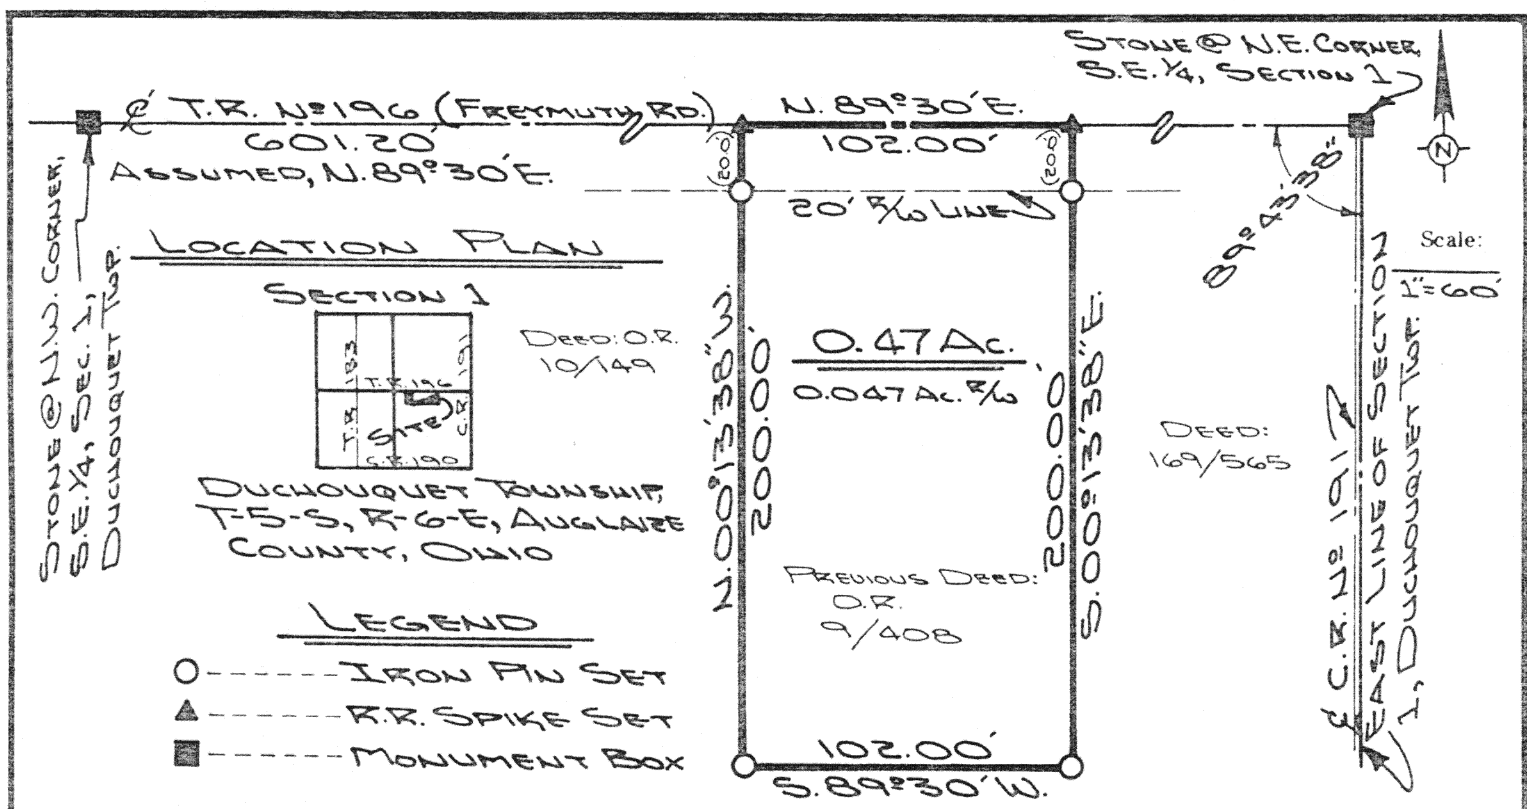 STONE @ N.E. CORNER,
S.E. ¼, SECTION 1
℄ T.R. Nº 196 (FREYMUTH RD.)
601.20'
ASSUMED, N. 89° 30' E.
N. 89° 30' E.
102.00'
(20.0')
(20.0')
20' R/W LINE
89° 43' 38"
N
Scale:
1"=60'
STONE @ N.W. CORNER,
S.E. ¼, SEC. 1,
DUCHOUQUET TWP.
LOCATION PLAN
SECTION 1
T.R. 183
T.R. 196
C.R. 191
SITE
C.R. 190
DEED: O.R.
10/149
DUCHOUQUET TOWNSHIP,
T-5-S, R-6-E, AUGLAIZE
COUNTY, OHIO
LEGEND
IRON PIN SET
R.R. SPIKE SET
MONUMENT BOX
N. 00° 13' 38" W.
200.00'
0.47 AC.
0.047 AC. R/W
PREVIOUS DEED:
O.R.
9/408
200.00'
S. 00° 13' 38" E.
102.00'
S. 89° 30' W.
DEED:
169/565
℄ C.R. Nº 191
EAST LINE OF SECTION
1, DUCHOUQUET TWP.